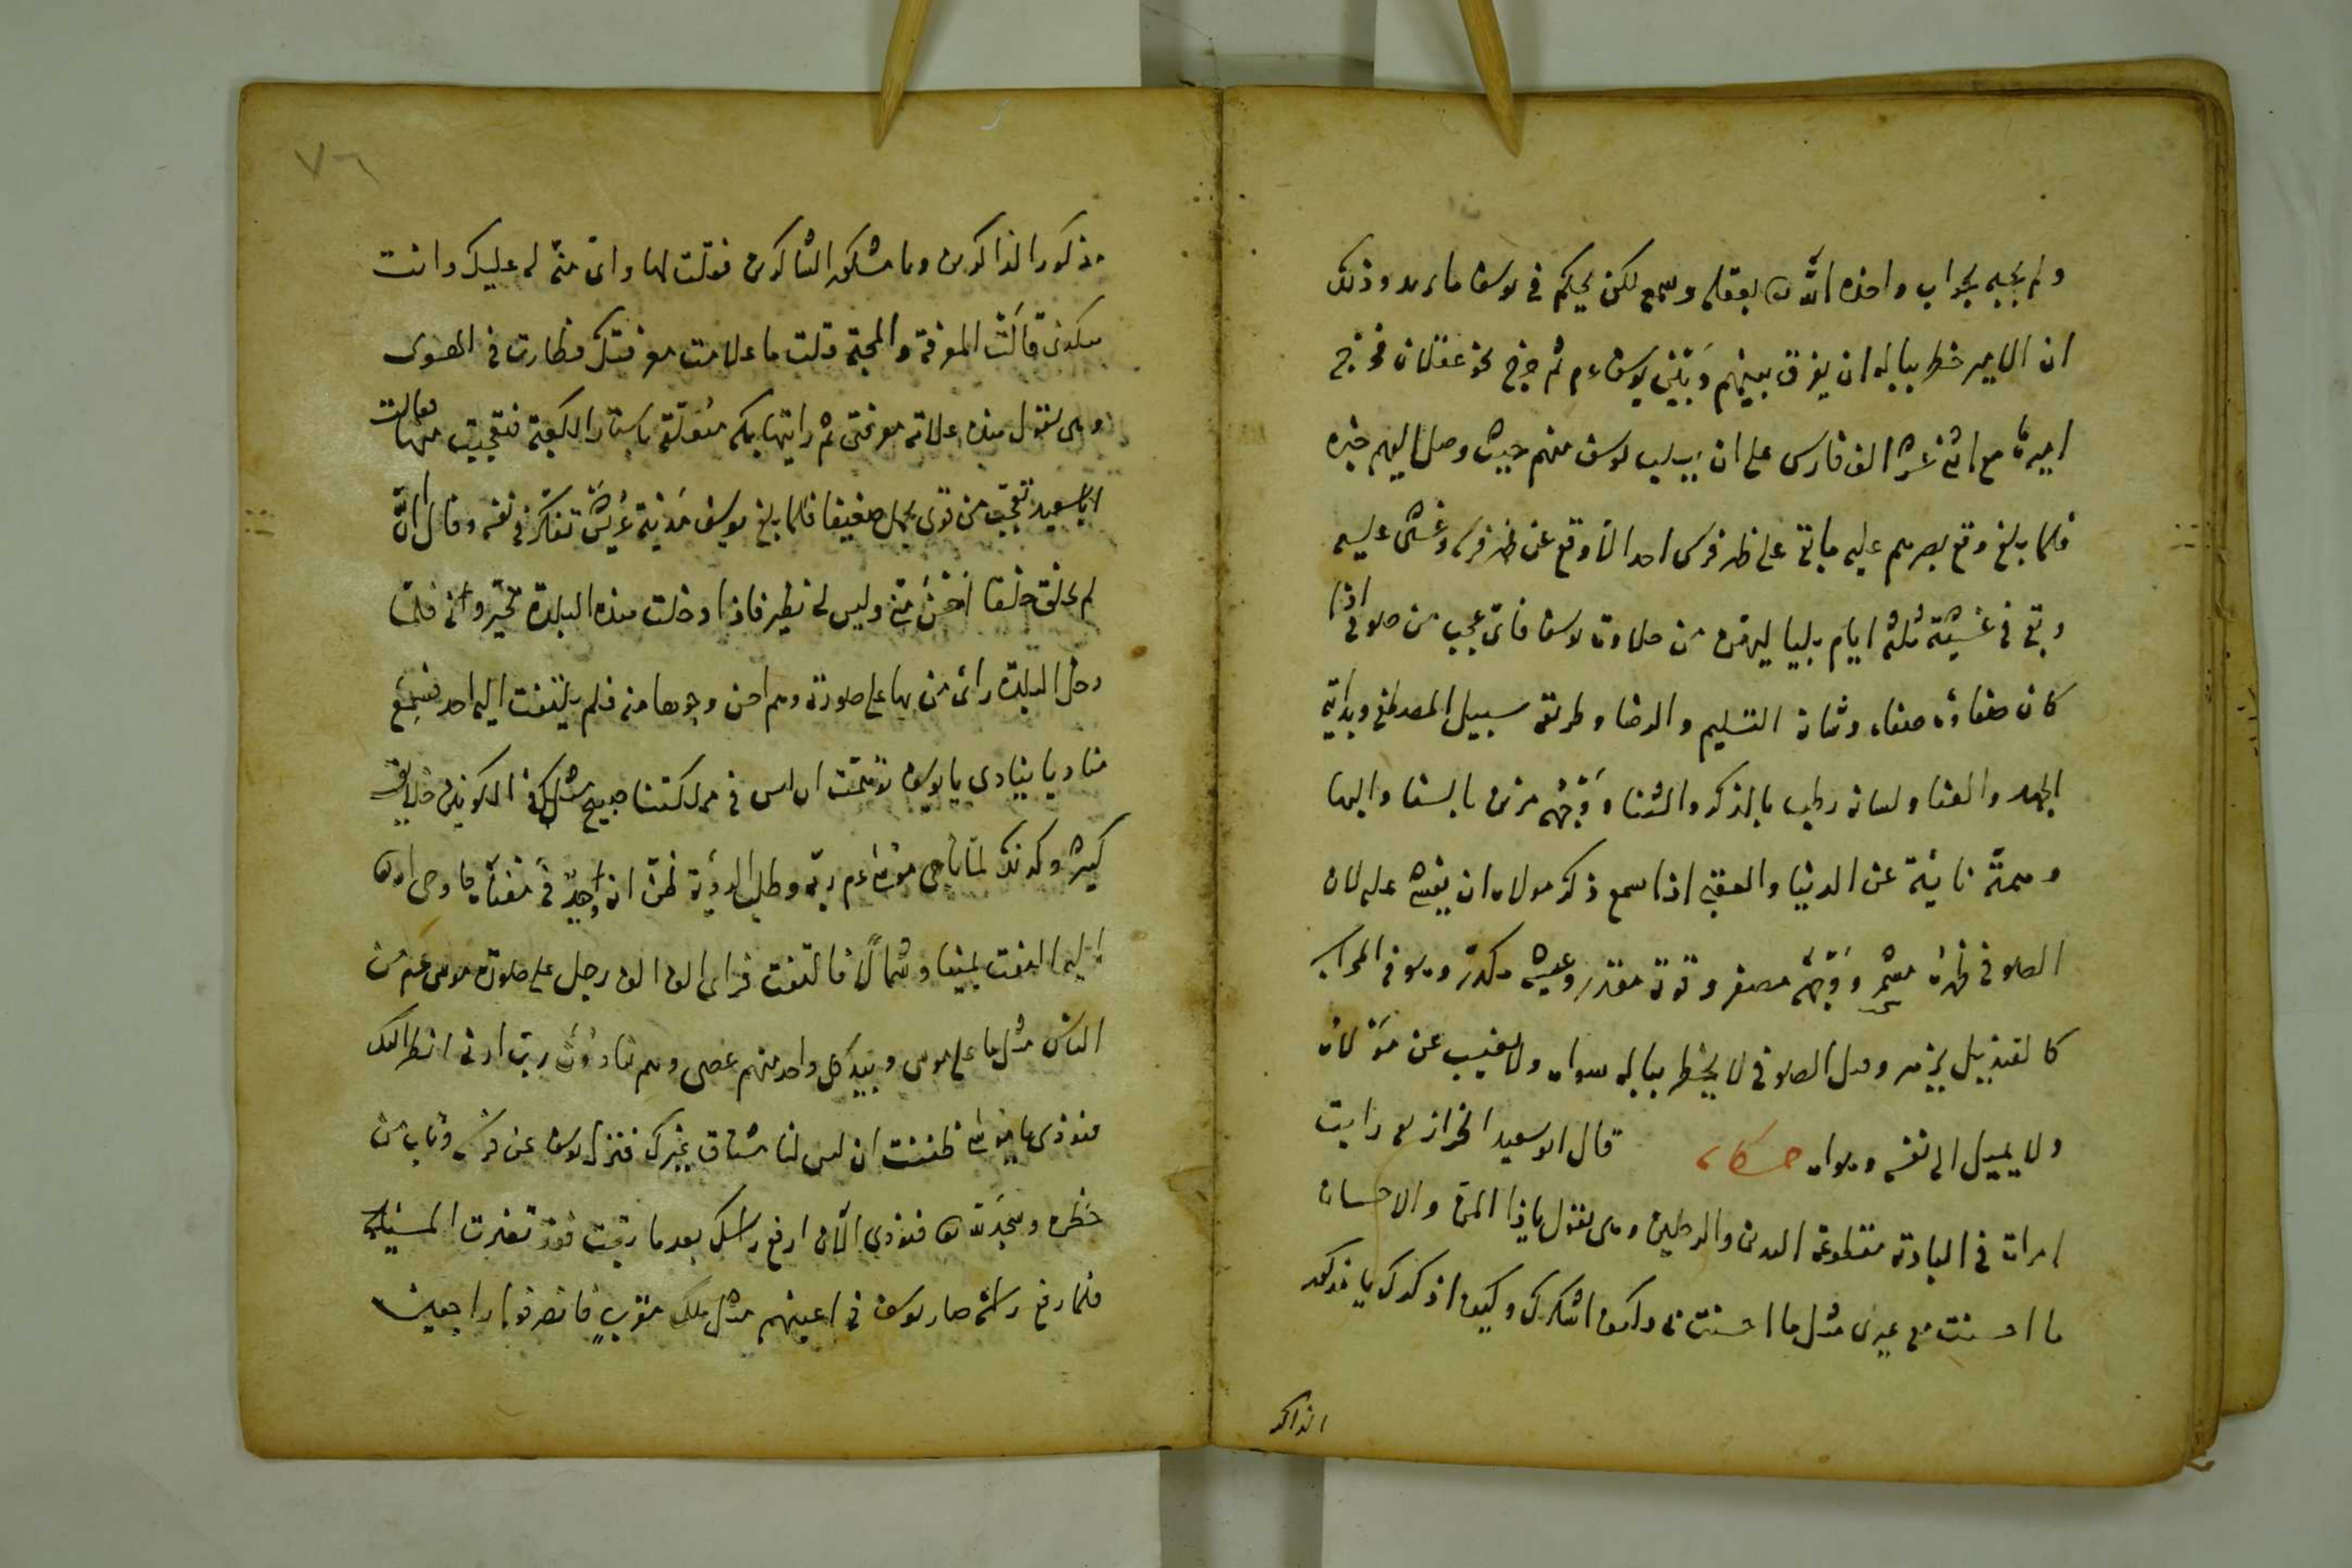 ولم يجبه بجواب واخذه الله بعقله وسمع لكن يحكم في يوسف ما يريد وذلك
ان الامير خطر بباله ان يفرق بينهم وبين يوسف ءم ثم خرج نحو عقلان فخرج
اميرها مع اثنى عشر الف فارس على ان يسلب يوسف منهم حيث وصل اليهم خبره
فلما بلغ وقع بصرهم عليه ما بقى على ظهر فرس احد الا وقع عن ظهر فرسه وغشى عليه
وبقى في غشيته ثلثة ايام بلياليهن من حلاوة يوسف فاى عجب من صوفي اذا
كان صفاؤه صفاء وشانه التسليم والرضا وطريقه سبيل المصطفى وبدايته
الجهد والعنا ولسانه رطب بالذكر والثنا ووجهه مزين بالسنا والبها
وهمته نائية عن الدنيا والعقبى اذا سمع ذكر مولاه ان يغشى عليه لان
الصوفي ظهره وجهه مصفر وقوته مقدر وعيشه مكدر وهو في المحراب
كالقنديل يزهر وهل الصوفى لا يخطر بباله سواه ولا يغيب عن مولاه
ولا يميل الى نفسه وهواه حكاية قال ابو سعيد الخراز رايت
امراة في البادية مقطوعة اليدين والرجلين وهى تقول ياذا المن والاحسان
ما احسنت مع غيرى مثل ما احسنت لى وكيف اشكرك وكيف اذكرك يا مذكور
الذاكر
٧٦
مذكور الذاكرين ويا مشكور الشاكرين فقلت لها واى منة له عليك وانت
قالت المعرفة والمحبة قلت ما علامت معرفتك فطارت في الهوى
وهى تقول هذه علامة معرفتى ثم رايتها بمكة متعلقة باستار الكعبة فتعجبت منها فقالت
ابا سعيد تعجب من قوى يحمل ضعيفا فلما بلغ يوسف مدينة عريش تفكر في نفسه وقال ان الله
لم يخلق خلقا احسن منى وليس لى نظير فاذا دخلت هذه البلدة تحيروا فى فلما
دخل البلدة راى من بها على صورته وهم احسن وجوها منه فلم يلتفت اليه احد فسمع
مناديا ينادى يا يوسف توهمت ان ليس في مملكتنا صبيح مثلك في الكونين خلايق
كثير وكذلك لما ناجى موسى ءم ربه وطلب الرؤية ظن انه وحيد في فاوحى الله
اليه التفت يمينا وشمالا فالتفت فراى الف الف رجل على صورة موسى عم من
الناس مثل ما على موسى وبيد كل واحد منهم عصى وهم ينادون رب ارنى انظر اليك
فنودى يا موسى ظننت ان ليس لنا مشتاق غيرك فنزل يوسف عن فرسه وتاب من
خطره وسجد لله فنودى الآن ارفع راسك بعد ما فقد تغيرت
فلما رفع راسه صار يوسف في اعينهم مثل ملك مقرب فانصرفوا راجعين